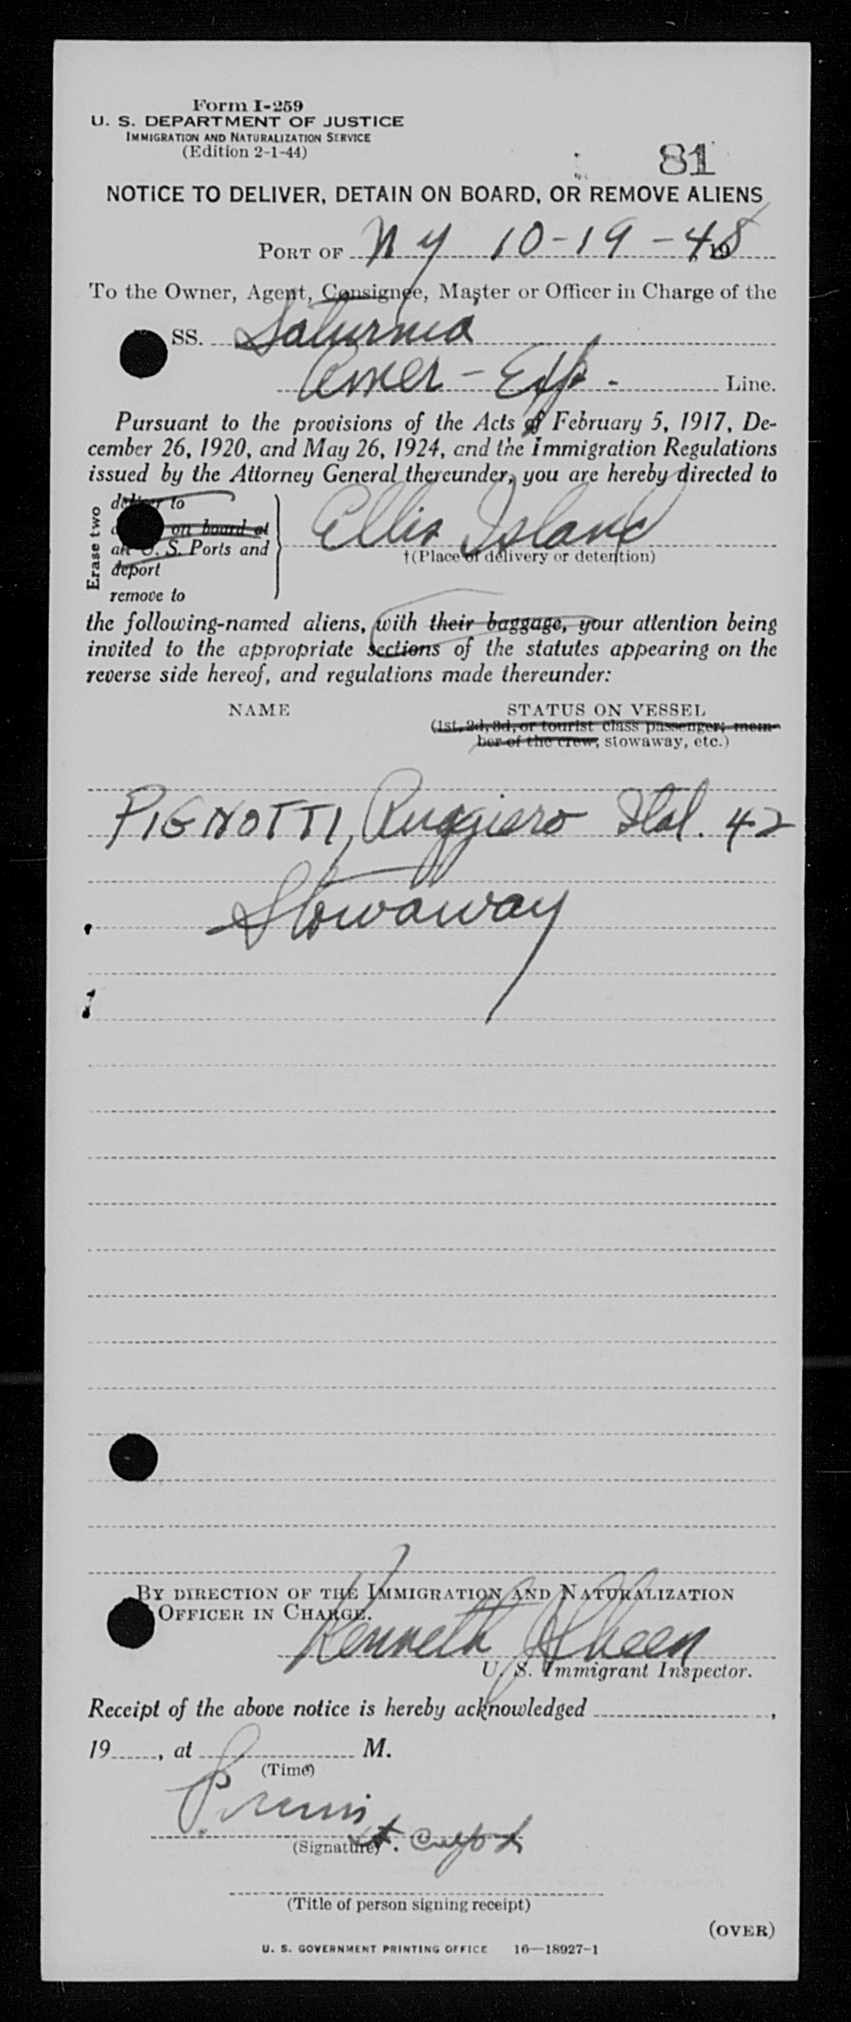 Form I-259
U. S. DEPARTMENT OF JUSTICE
IMMIGRATION AND NATURALIZATION SERVICE
(Edition 2-1-44)
81
NOTICE TO DELIVER, DETAIN ON BOARD, OR REMOVE ALIENS
PORT OF N Y 10-19-48, 19
To the Owner, Agent, Consignee, Master or Officer in Charge of the
SS. Saturnia
Amer-Exp. Line.
Pursuant to the provisions of the Acts of February 5, 1917, De-
cember 26, 1920, and May 26, 1924, and the Immigration Regulations
issued by the Attorney General thereunder, you are hereby directed to
Erase two
deliver to
on board at
an U. S. Ports and
deport
remove to
Ellis Island
†(Place of delivery or detention)
the following-named aliens, with their baggage, your attention being
invited to the appropriate sections of the statutes appearing on the
reverse side hereof, and regulations made thereunder:
NAME STATUS ON VESSEL
(1st, 2d, 3d, or tourist class passenger; mem-
ber of the crew; stowaway, etc.)
PIGNOTTI, Ruggiero Ital. 42
Stowaway
BY DIRECTION OF THE IMMIGRATION AND NATURALIZATION
OFFICER IN CHARGE.
Kenneth
U. S. Immigrant Inspector.
Receipt of the above notice is hereby acknowledged ,
19 , at M.
(Time)
(Signature)
(Title of person signing receipt)
(OVER)
U. S. GOVERNMENT PRINTING OFFICE 16—18927-1